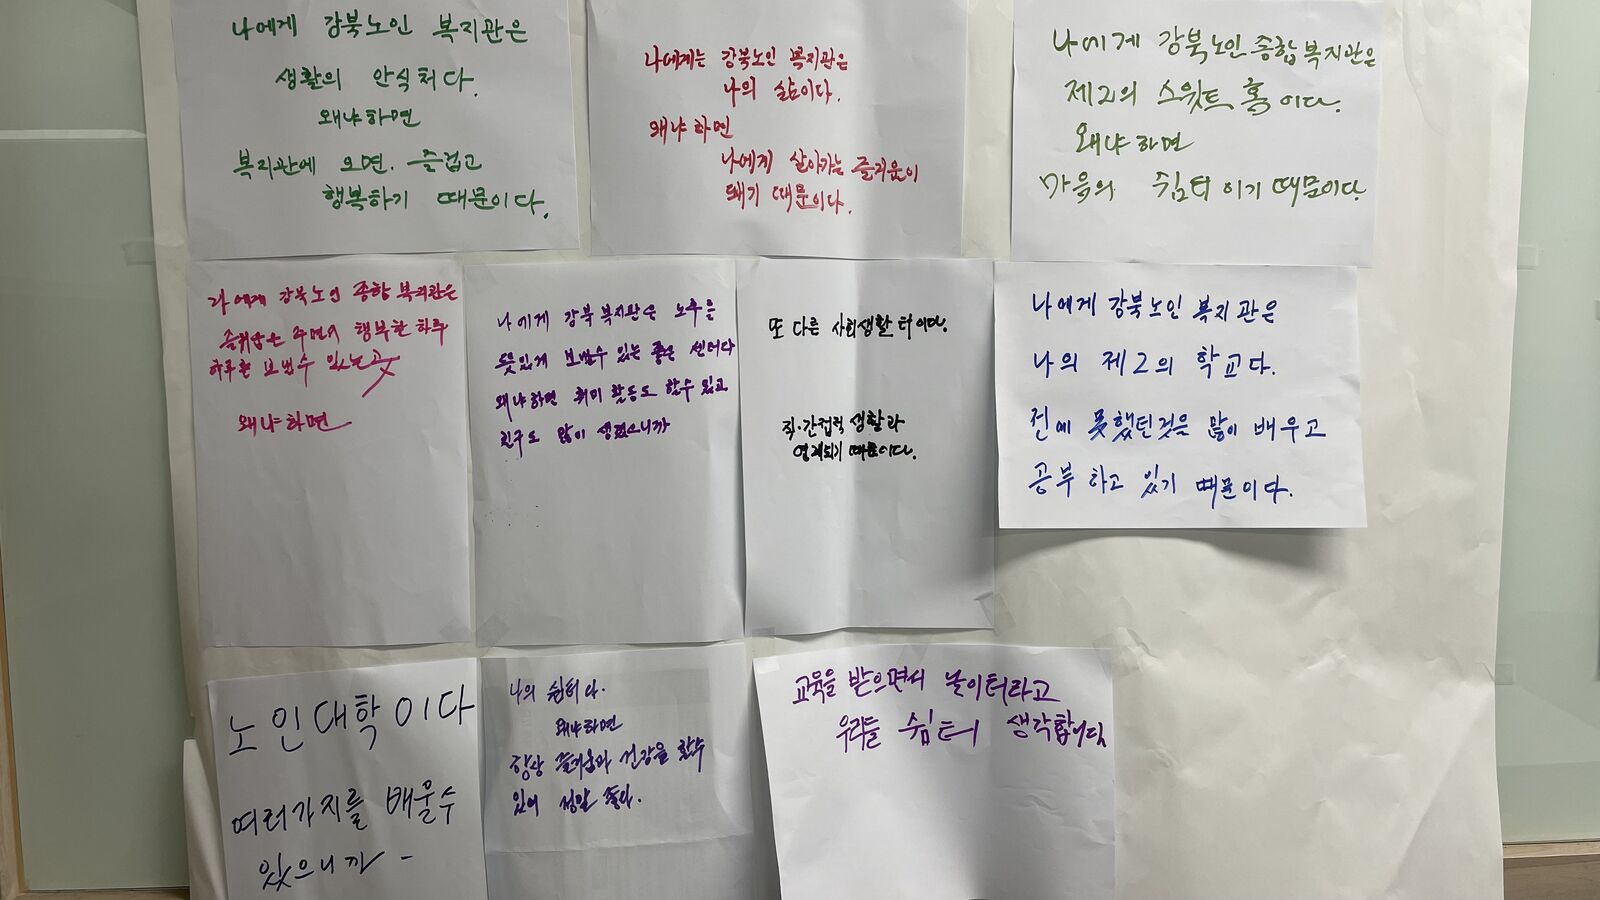 나에게 강북노인 복지관은
생활의 안식처다.
왜냐하면
복지관에 오면. 즐겁고
행복하기 때문이다.
나에게는 강북노인 복지관은
나의 삶이다.
왜냐하면
나에게 살아가는 즐거움이
돼기 때문이다.
나에게 강북노인 종합복지관은
제2의 스윗트 홈이다.
왜냐하면
마음의 쉼터이기 때문이다
강북노인 종합 복지관은
행복한 하루
하루를 보낼수 있는곳
왜냐하면
나에게 강북 복지관은 노후를
뜻있게 보낼수 있는 좋은 센터다
왜냐하면 취미 활동도 할수 있고
친구도 많이 생겼으니까
또 다른 사회생활 터이다.
직·간접적 생활과
연계되기 때문이다.
나에게 강북노인 복지관은
나의 제2의 학교다.
전에 못했던것을 많이 배우고
공부 하고 있기 때문이다.
노인대학이다
여러가지를 배울수
있으니까 -
나의 쉼터다.
왜냐하면
항상 즐거움과 건강을 할수
있어 정말 좋다.
교육을 받으면서 놀이터라고
우리들 쉼터 생각합니다